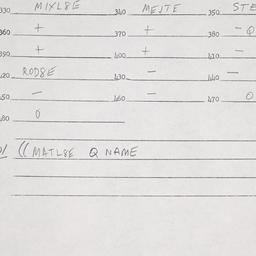 330 MIXL8E 340 MEJTE 350 STE
360 + 370 + 380 - Q
390 + 400 + 410 -
420 ROD8E 430 - 440 -
450 - 460 - 470 O
480 O
((MATL8E Q NAME